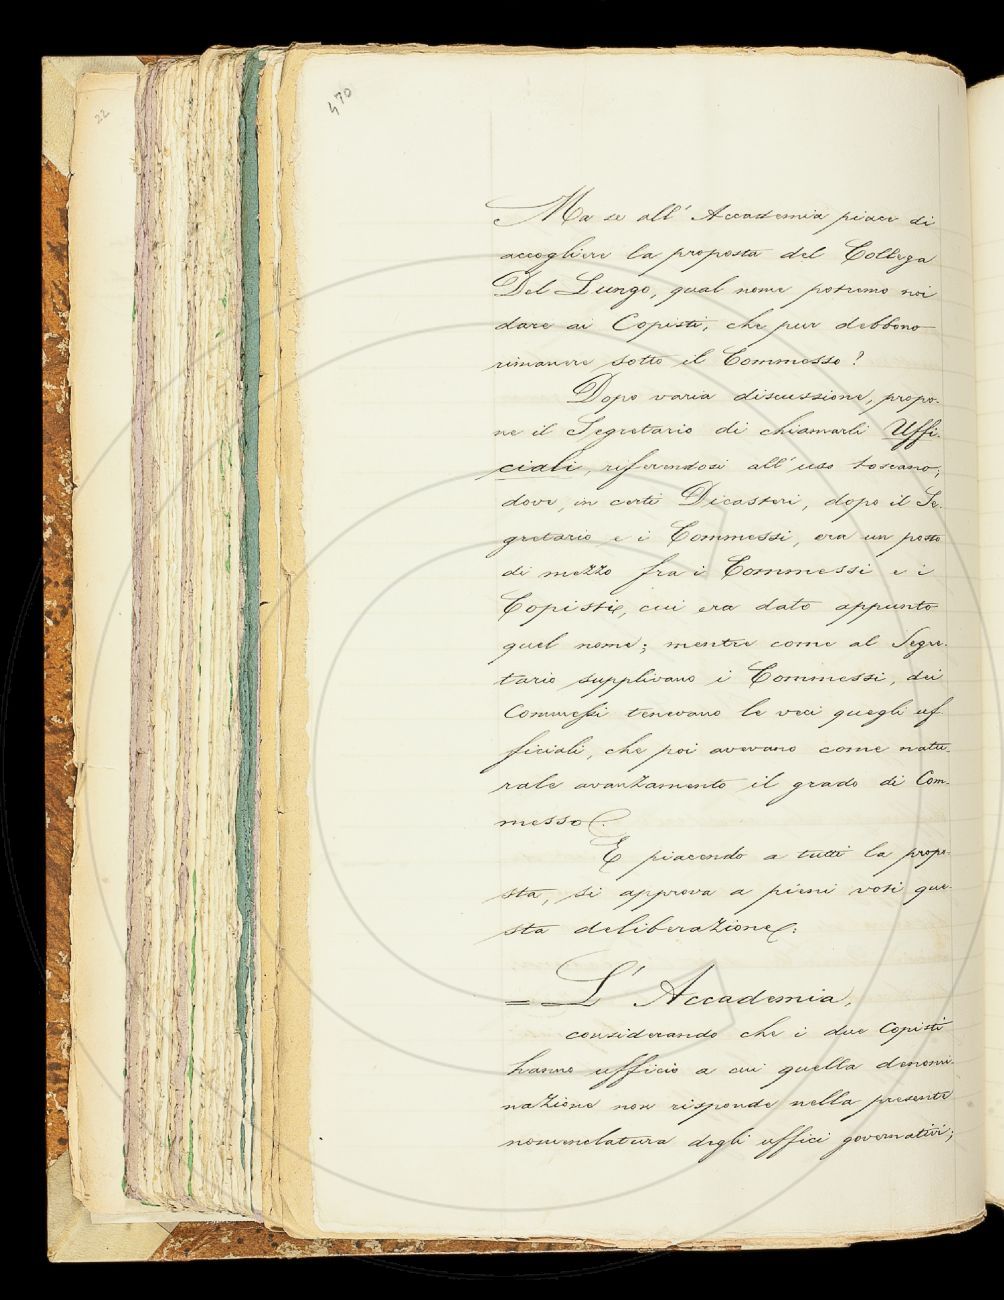 470
22
Ma se all' Accademia piace di
accogliere la proposta del Collega
Del Lungo, qual nome potremo noi
dare ai Copisti, che pur debbono
rimanere sotto il Commesso?
Dopo varia discussione, propo-
ne il Segretario di chiamarli Uffi-
ciali, riferendosi all' uso toscano;
dove, in certi Dicasteri, dopo il Se-
gretario e i Commessi, era un posto
di mezzo fra i Commessi e i
Copisti, cui era dato appunto
quel nome; mentre come al Segre-
tario supplivano i Commessi, dei
Commessi tenevano le veci quegli uf-
ficiali, che poi avevano come natu-
rale avanzamento il grado di Com-
messo.
E piacendo a tutti la propo-
sta, si approva a pieni voti que-
sta deliberazione:
= L' Accademia,
considerando che i due Copisti
hanno ufficio a cui quella denomi-
nazione non risponde nella presente
nomenclatura degli uffici governativi;